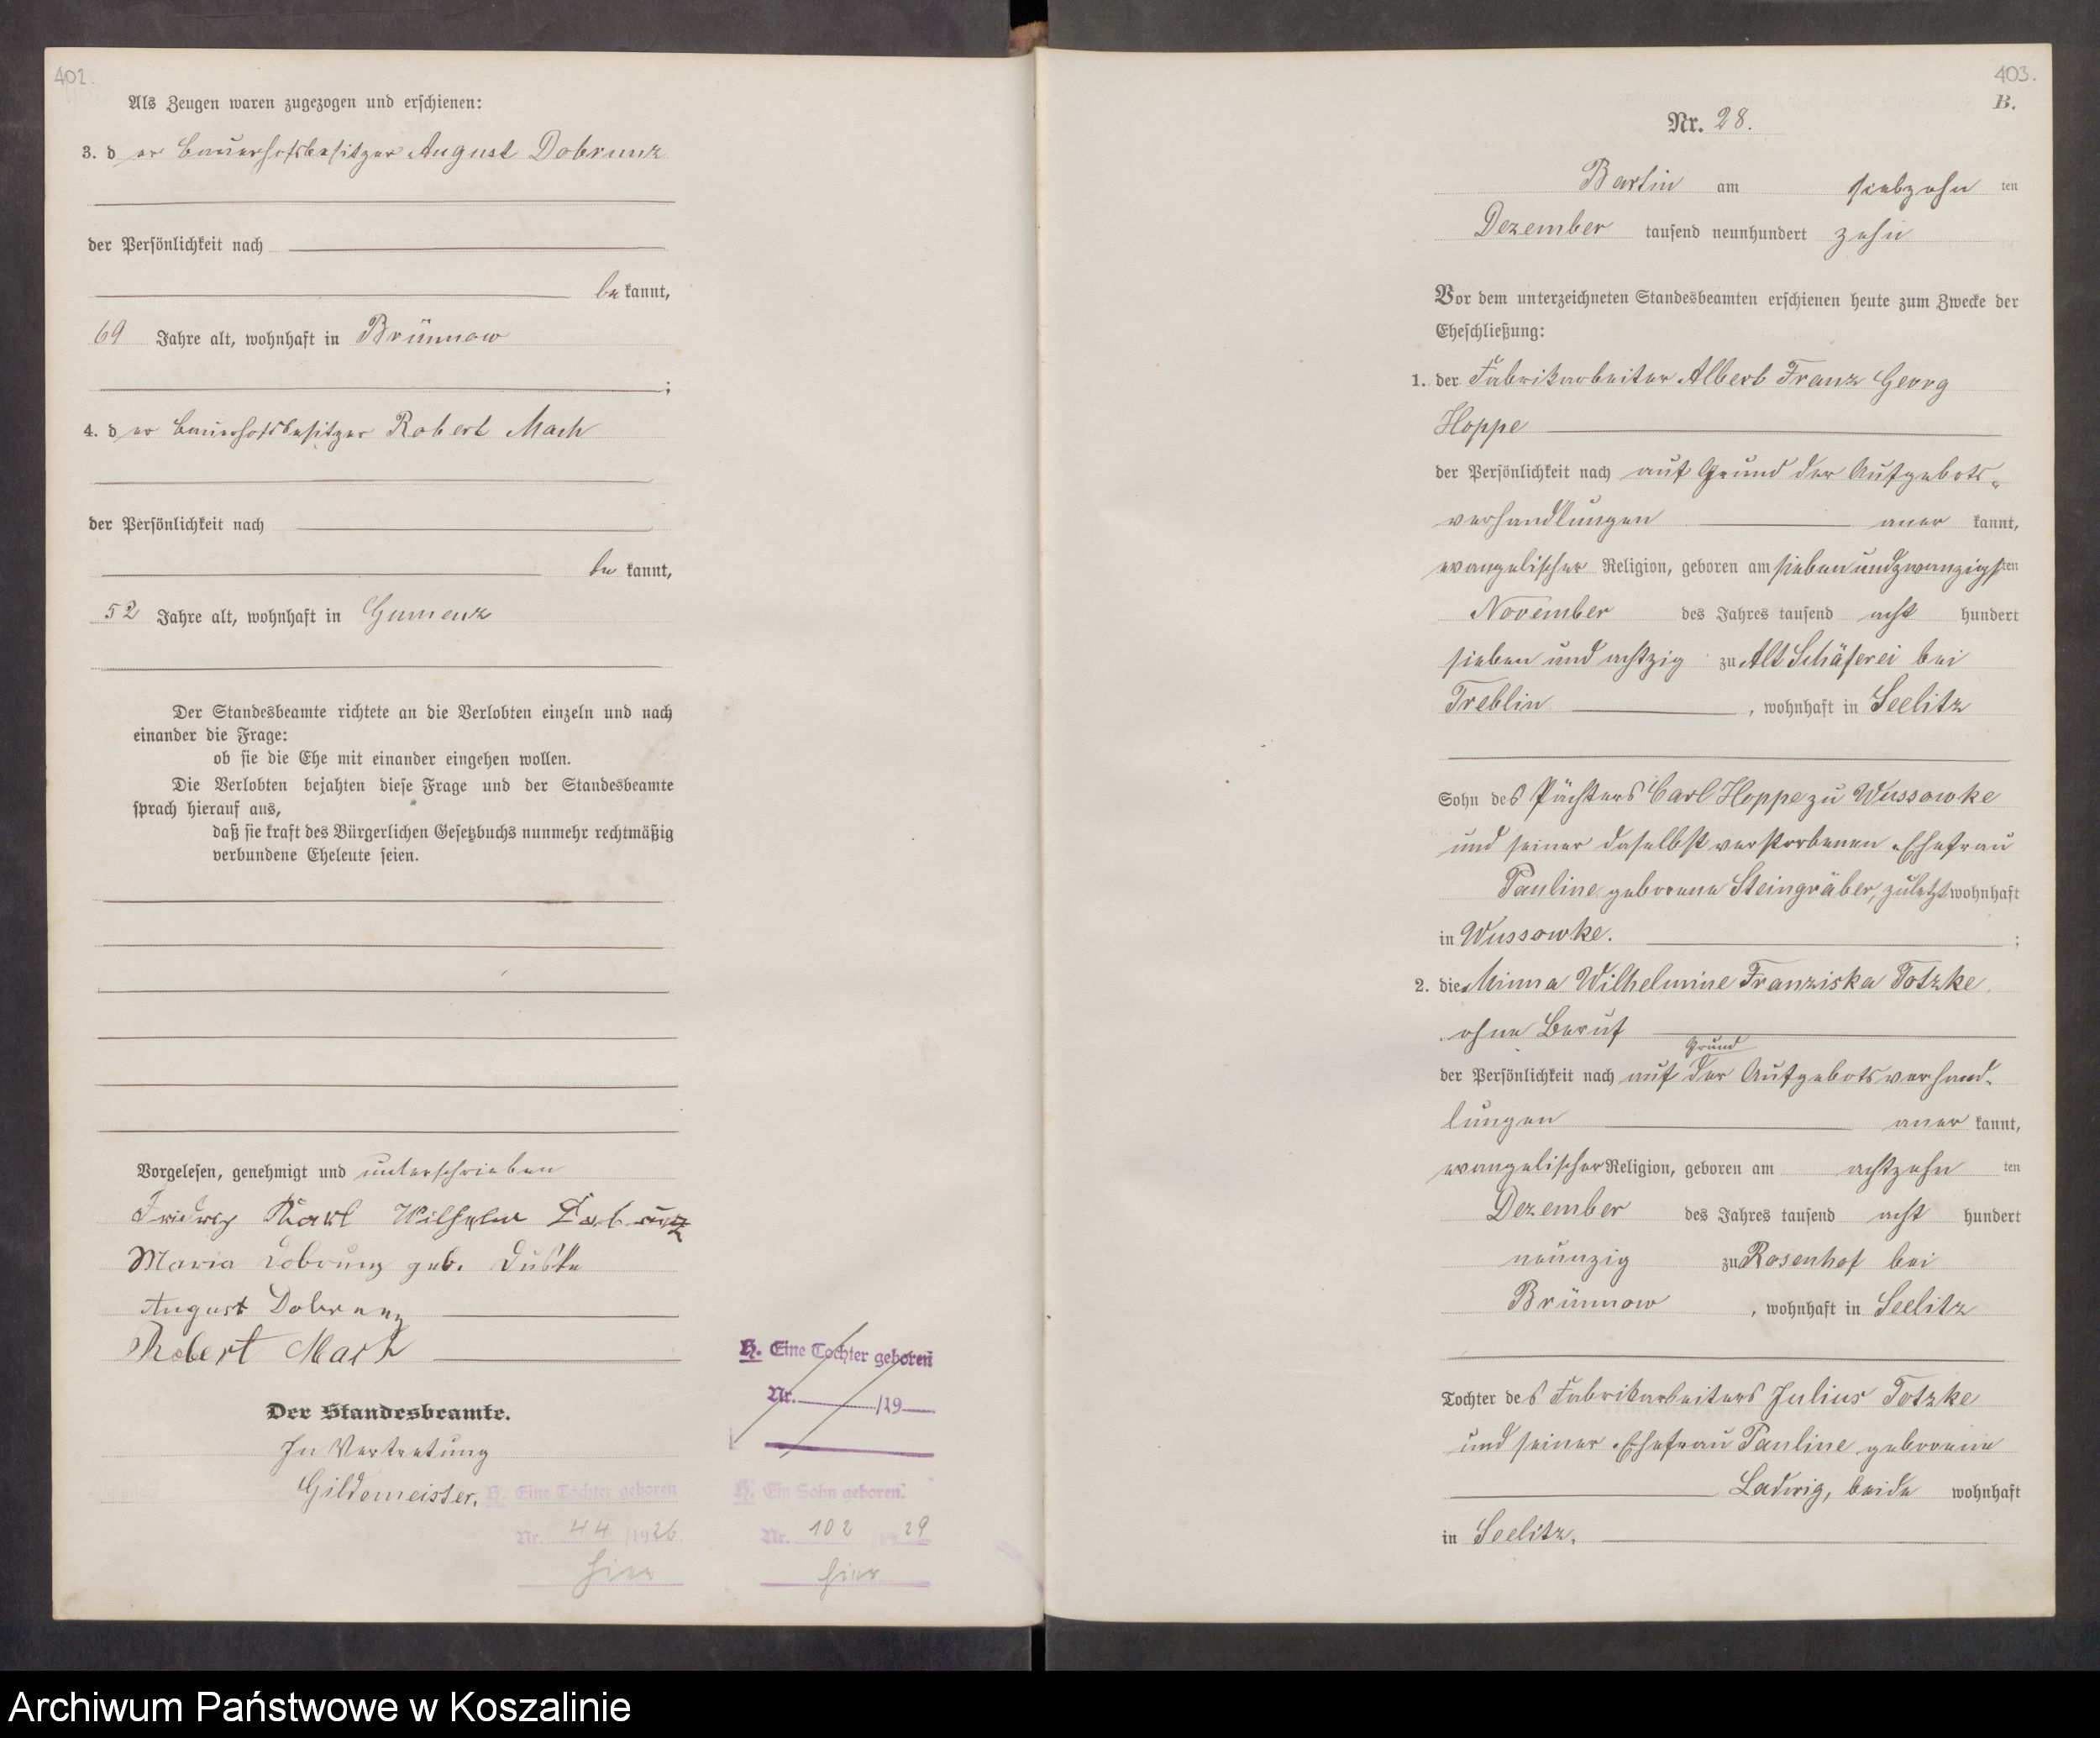 402.
Als Zeugen waren zugezogen und erschienen:
3. der Bauerhofsbesitzer August Dobrunz
der Persönlichkeit nach
bekannt,
69 Jahre alt, wohnhaft in Brünnow
;
4. der Bauerhofsbesitzer Robert Mach
der Persönlichkeit nach
bekannt,
52 Jahre alt, wohnhaft in Gumenz
Der Standesbeamte richtete an die Verlobten einzeln und nach
einander die Frage:
ob sie die Ehe mit einander eingehen wollen.
Die Verlobten bejahten diese Frage und der Standesbeamte
sprach hierauf aus,
daß sie kraft des Bürgerlichen Gesetzbuchs nunmehr rechtmäßig
verbundene Eheleute seien.
Vorgelesen, genehmigt und unterschrieben
Karl Wilhelm Dobrunz
Maria Dobrunz geb. Duske
August Dobrunz
Robert Mach
Der Standesbeamte.
In Vertretung
Gildemeister.
H. Eine Tochter geboren
Nr. /19
H. Eine Tochter geboren
Nr. 44 /1926
hier
H. Ein Sohn geboren.
Nr. 102 29
hier
403.
B.
Nr. 28.
Bartin am siebzehnten
Dezember tausend neunhundert zehn
Vor dem unterzeichneten Standesbeamten erschienen heute zum Zwecke der
Eheschließung:
1. der Fabrikarbeiter Albert Franz Georg
Hoppe
der Persönlichkeit nach auf Grund der Aufgebots-
verhandlungen anerkannt,
evangelischer Religion, geboren am siebenundzwanzigsten
November des Jahres tausend acht hundert
sieben und achtzig zu Alt Schäferei bei
Treblin, wohnhaft in Seelitz
Sohn des Pächters Carl Hoppe zu Wussowke
und seiner daselbst verstorbenen Ehefrau
Pauline geborene Steingräber, zuletzt wohnhaft
in Wussowke. ;
2. die Minna Wilhelmine Franziska Totzke,
ohne Beruf
Grund
der Persönlichkeit nach auf der Aufgebotsverhand-
lungen anerkannt,
evangelischer Religion, geboren am achtzehnten
Dezember des Jahres tausend acht hundert
neunzig zu Rosenhof bei
Brünnow, wohnhaft in Seelitz
Tochter des Fabrikarbeiters Julius Totzke
und seiner Ehefrau Pauline geborene
Ladwig, beide wohnhaft
in Seelitz.
Archiwum Państwowe w Koszalinie